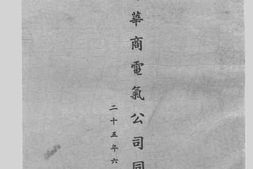 華商電氣公司同
二十五年六